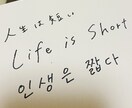 人生は短い
Life is short
인생은 짧다